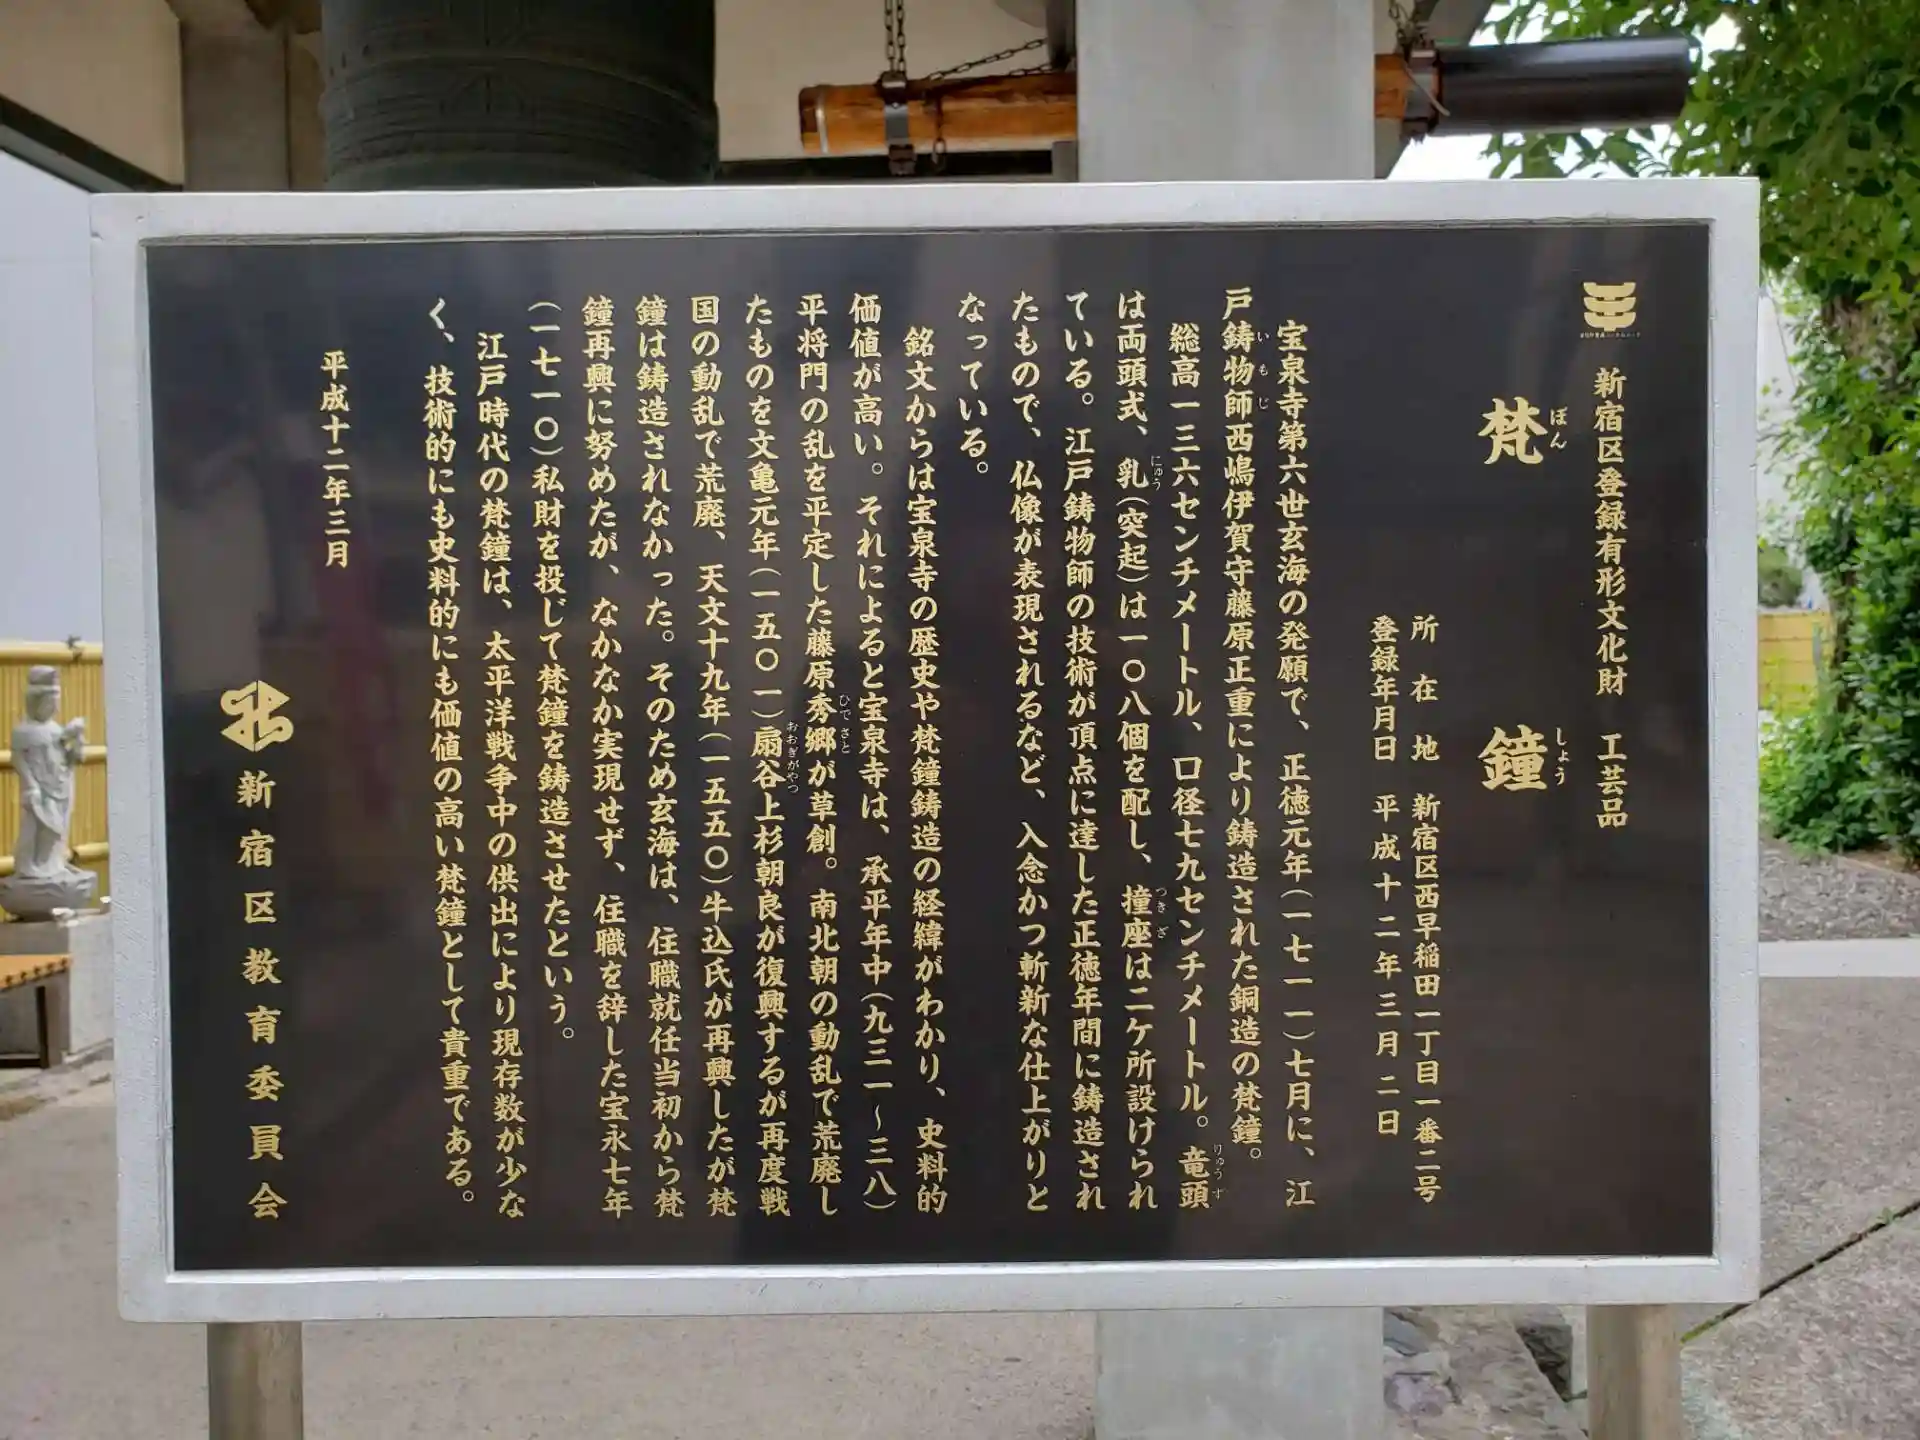 新宿区登録有形文化財　工芸品
梵鐘
ぼんしょう
所在地　新宿区西早稲田一丁目一番二号
登録年月日　平成十二年三月二日
宝泉寺第六世玄海の発願で、正徳元年（一七一一）七月に、江
戸鋳物師西嶋伊賀守藤原正重により鋳造された銅造の梵鐘。
いもじ
総高一三六センチメートル、口径七九センチメートル。竜頭
りゅうず
は両頭式、乳（突起）は一〇八個を配し、撞座は二ケ所設けられ
にゅう
つきざ
ている。江戸鋳物師の技術が頂点に達した正徳年間に鋳造され
たもので、仏像が表現されるなど、入念かつ斬新な仕上がりと
なっている。
銘文からは宝泉寺の歴史や梵鐘鋳造の経緯がわかり、史料的
価値が高い。それによると宝泉寺は、承平年中（九三一～三八）
平将門の乱を平定した藤原秀郷が草創。南北朝の動乱で荒廃し
ひでさと
たものを文亀元年（一五〇一）扇谷上杉朝良が復興するが再度戦
おおぎがやつ
国の動乱で荒廃、天文十九年（一五五〇）牛込氏が再興したが梵
鐘は鋳造されなかった。そのため玄海は、住職就任当初から梵
鐘再興に努めたが、なかなか実現せず、住職を辞した宝永七年
（一七一〇）私財を投じて梵鐘を鋳造させたという。
江戸時代の梵鐘は、太平洋戦争中の供出により現存数が少な
く、技術的にも史料的にも価値の高い梵鐘として貴重である。
平成十二年三月
新宿区教育委員会